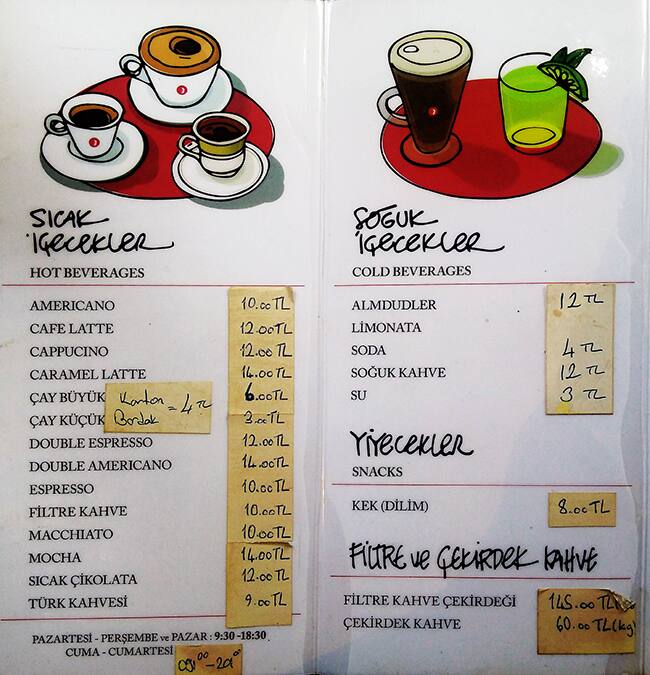 SICAK
İÇECEKLER
HOT BEVERAGES
AMERICANO 10.00 TL
CAFE LATTE 12.00 TL
CAPPUCINO 12.00 TL
CARAMEL LATTE 14.00 TL
ÇAY BÜYÜK 6.00 TL
Karton Bardak = 4 TL
ÇAY KÜÇÜK 3.00 TL
DOUBLE ESPRESSO 12.00 TL
DOUBLE AMERICANO 14.00 TL
ESPRESSO 10.00 TL
FİLTRE KAHVE 10.00 TL
MACCHIATO 10.00 TL
MOCHA 14.00 TL
SICAK ÇİKOLATA 12.00 TL
TÜRK KAHVESİ 9.00 TL
PAZARTESİ - PERŞEMBE ve PAZAR : 9:30 -18:30
CUMA - CUMARTESİ
SOĞUK
İÇECEKLER
COLD BEVERAGES
ALMDUDLER 12 TL
LİMONATA
SODA 4 TL
SOĞUK KAHVE 12 TL
SU 3 TL
YİYECEKLER
SNACKS
KEK (DİLİM) 8.00 TL
FİLTRE ve ÇEKİRDEK KAHVE
FİLTRE KAHVE ÇEKİRDEĞİ 145.00 TL
ÇEKİRDEK KAHVE 60.00 TL (kg)